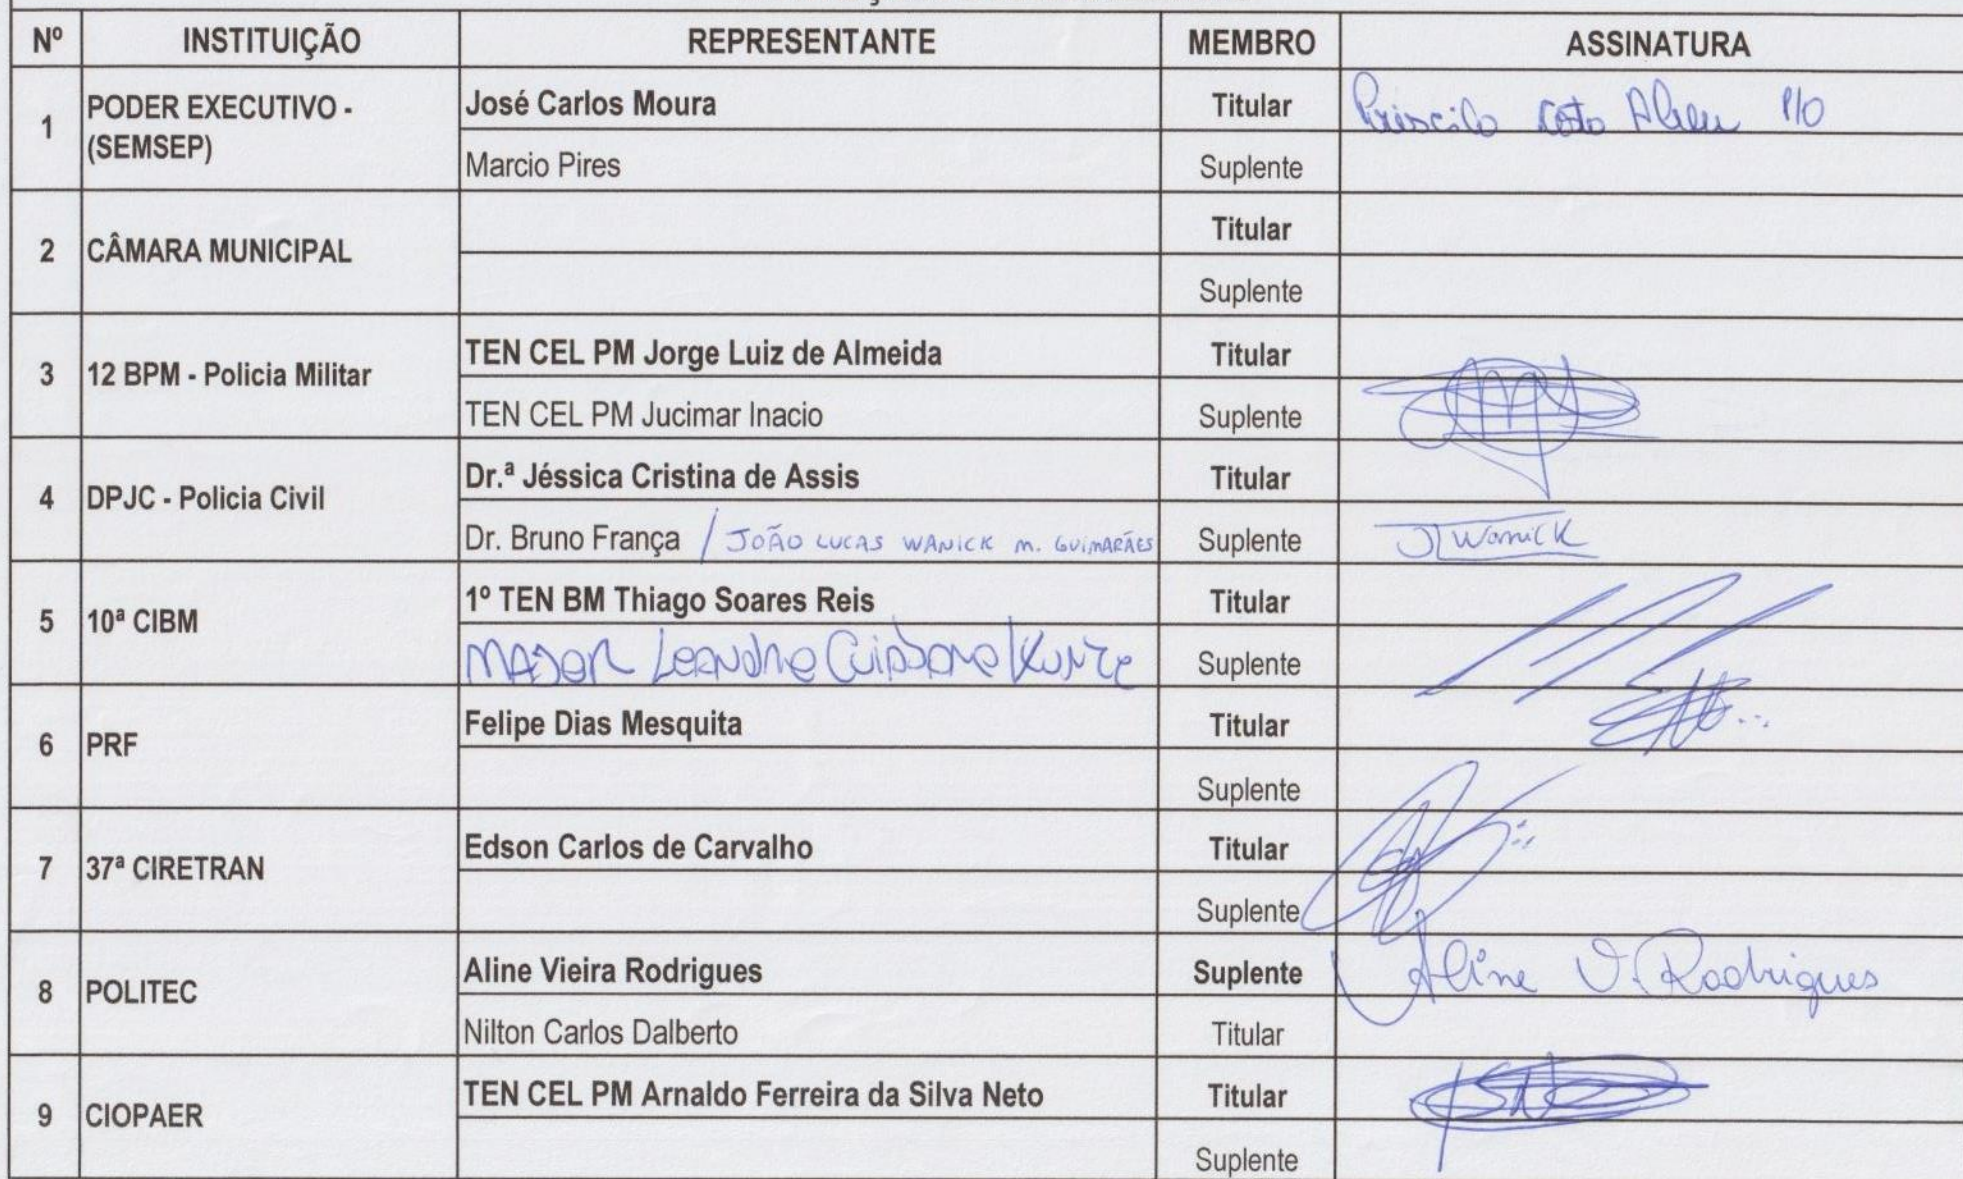 Nº INSTITUIÇÃO REPRESENTANTE MEMBRO ASSINATURA
1 PODER EXECUTIVO - (SEMSEP) José Carlos Moura Titular P/O
Marcio Pires Suplente
2 CÂMARA MUNICIPAL Titular
Suplente
3 12 BPM - Policia Militar TEN CEL PM Jorge Luiz de Almeida Titular
TEN CEL PM Jucimar Inacio Suplente
4 DPJC - Policia Civil Dr.ª Jéssica Cristina de Assis Titular
Dr. Bruno França / JOÃO LUCAS WANICK M. GUIMARÃES Suplente JLWanick
5 10ª CIBM 1º TEN BM Thiago Soares Reis Titular
MAJOR Leandro Kunze Suplente
6 PRF Felipe Dias Mesquita Titular
Suplente
7 37ª CIRETRAN Edson Carlos de Carvalho Titular
Suplente
8 POLITEC Aline Vieira Rodrigues Suplente Aline V. Rodrigues
Nilton Carlos Dalberto Titular
9 CIOPAER TEN CEL PM Arnaldo Ferreira da Silva Neto Titular
Suplente